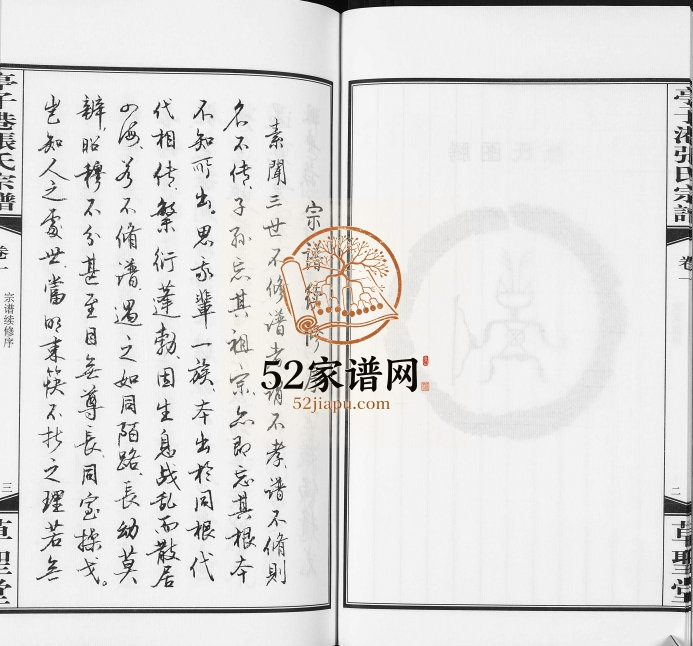 亭子港张氏宗谱
卷一
二
草聖堂
宗谱续修序
素聞三世不修谱者谓不孝,谱不脩則
名不传,子孙忘其祖宗,亦即忘其根本
不知所出。思我輩一族,本出於同根代
代相传,繁衍蓬勃,因生息战乱而散居
四海,若不脩谱,遇之如同陌路,長幼莫
辨,昭穆不分,甚至目無尊長,同室操戈。
豈知人之處世,當明束筷不折之理,若無
亭子港張氏宗譜
卷一
宗谱续修序
三
草聖堂
52家谱网
52jiapu.com